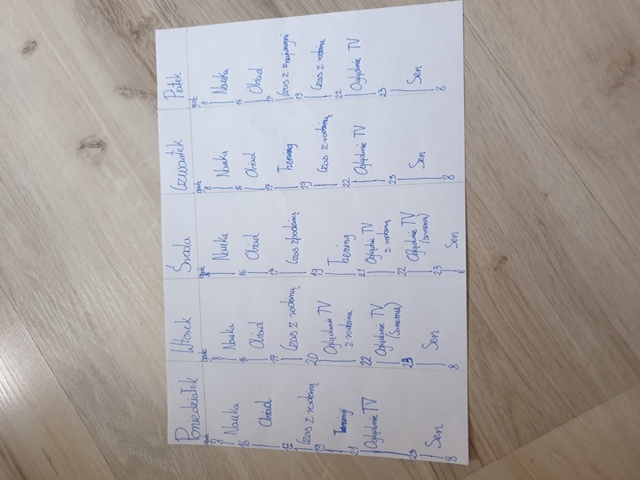 Poniedziałek
godz
8
Nauka
16
Obiad
17
Czas z rodziną
19
Trening
21
Oglądanie TV
23
Sen
8
Wtorek
godz
8
Nauka
16
Obiad
17
Czas z rodziną
20
Oglądanie TV
z rodziną
22
Oglądanie TV
(samemu)
23
Sen
8
Środa
godz
8
Nauka
16
Obiad
17
Czas z rodziną
19
Trening
21
Oglądanie TV
z rodziną
22
Oglądanie TV
(samemu)
23
Sen
8
Czwartek
godz
8
Nauka
16
Obiad
17
Trening
19
Czas z rodziną
22
Oglądanie TV
23
Sen
8
Piątek
godz
8
Nauka
16
Obiad
17
Czas z znajomymi
19
Czas z rodziną
22
Oglądanie TV
23
Sen
8